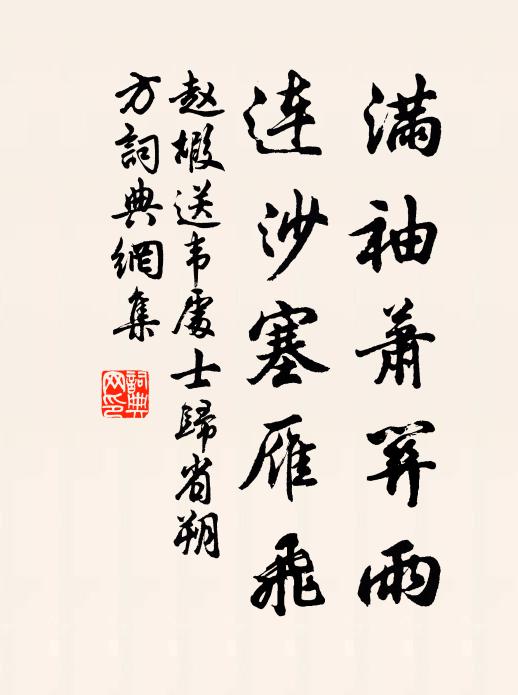 滿袖蕭關雨
連沙塞雁飛
赵椵送韦處士歸省朔
方詞典網集
詞典
网印